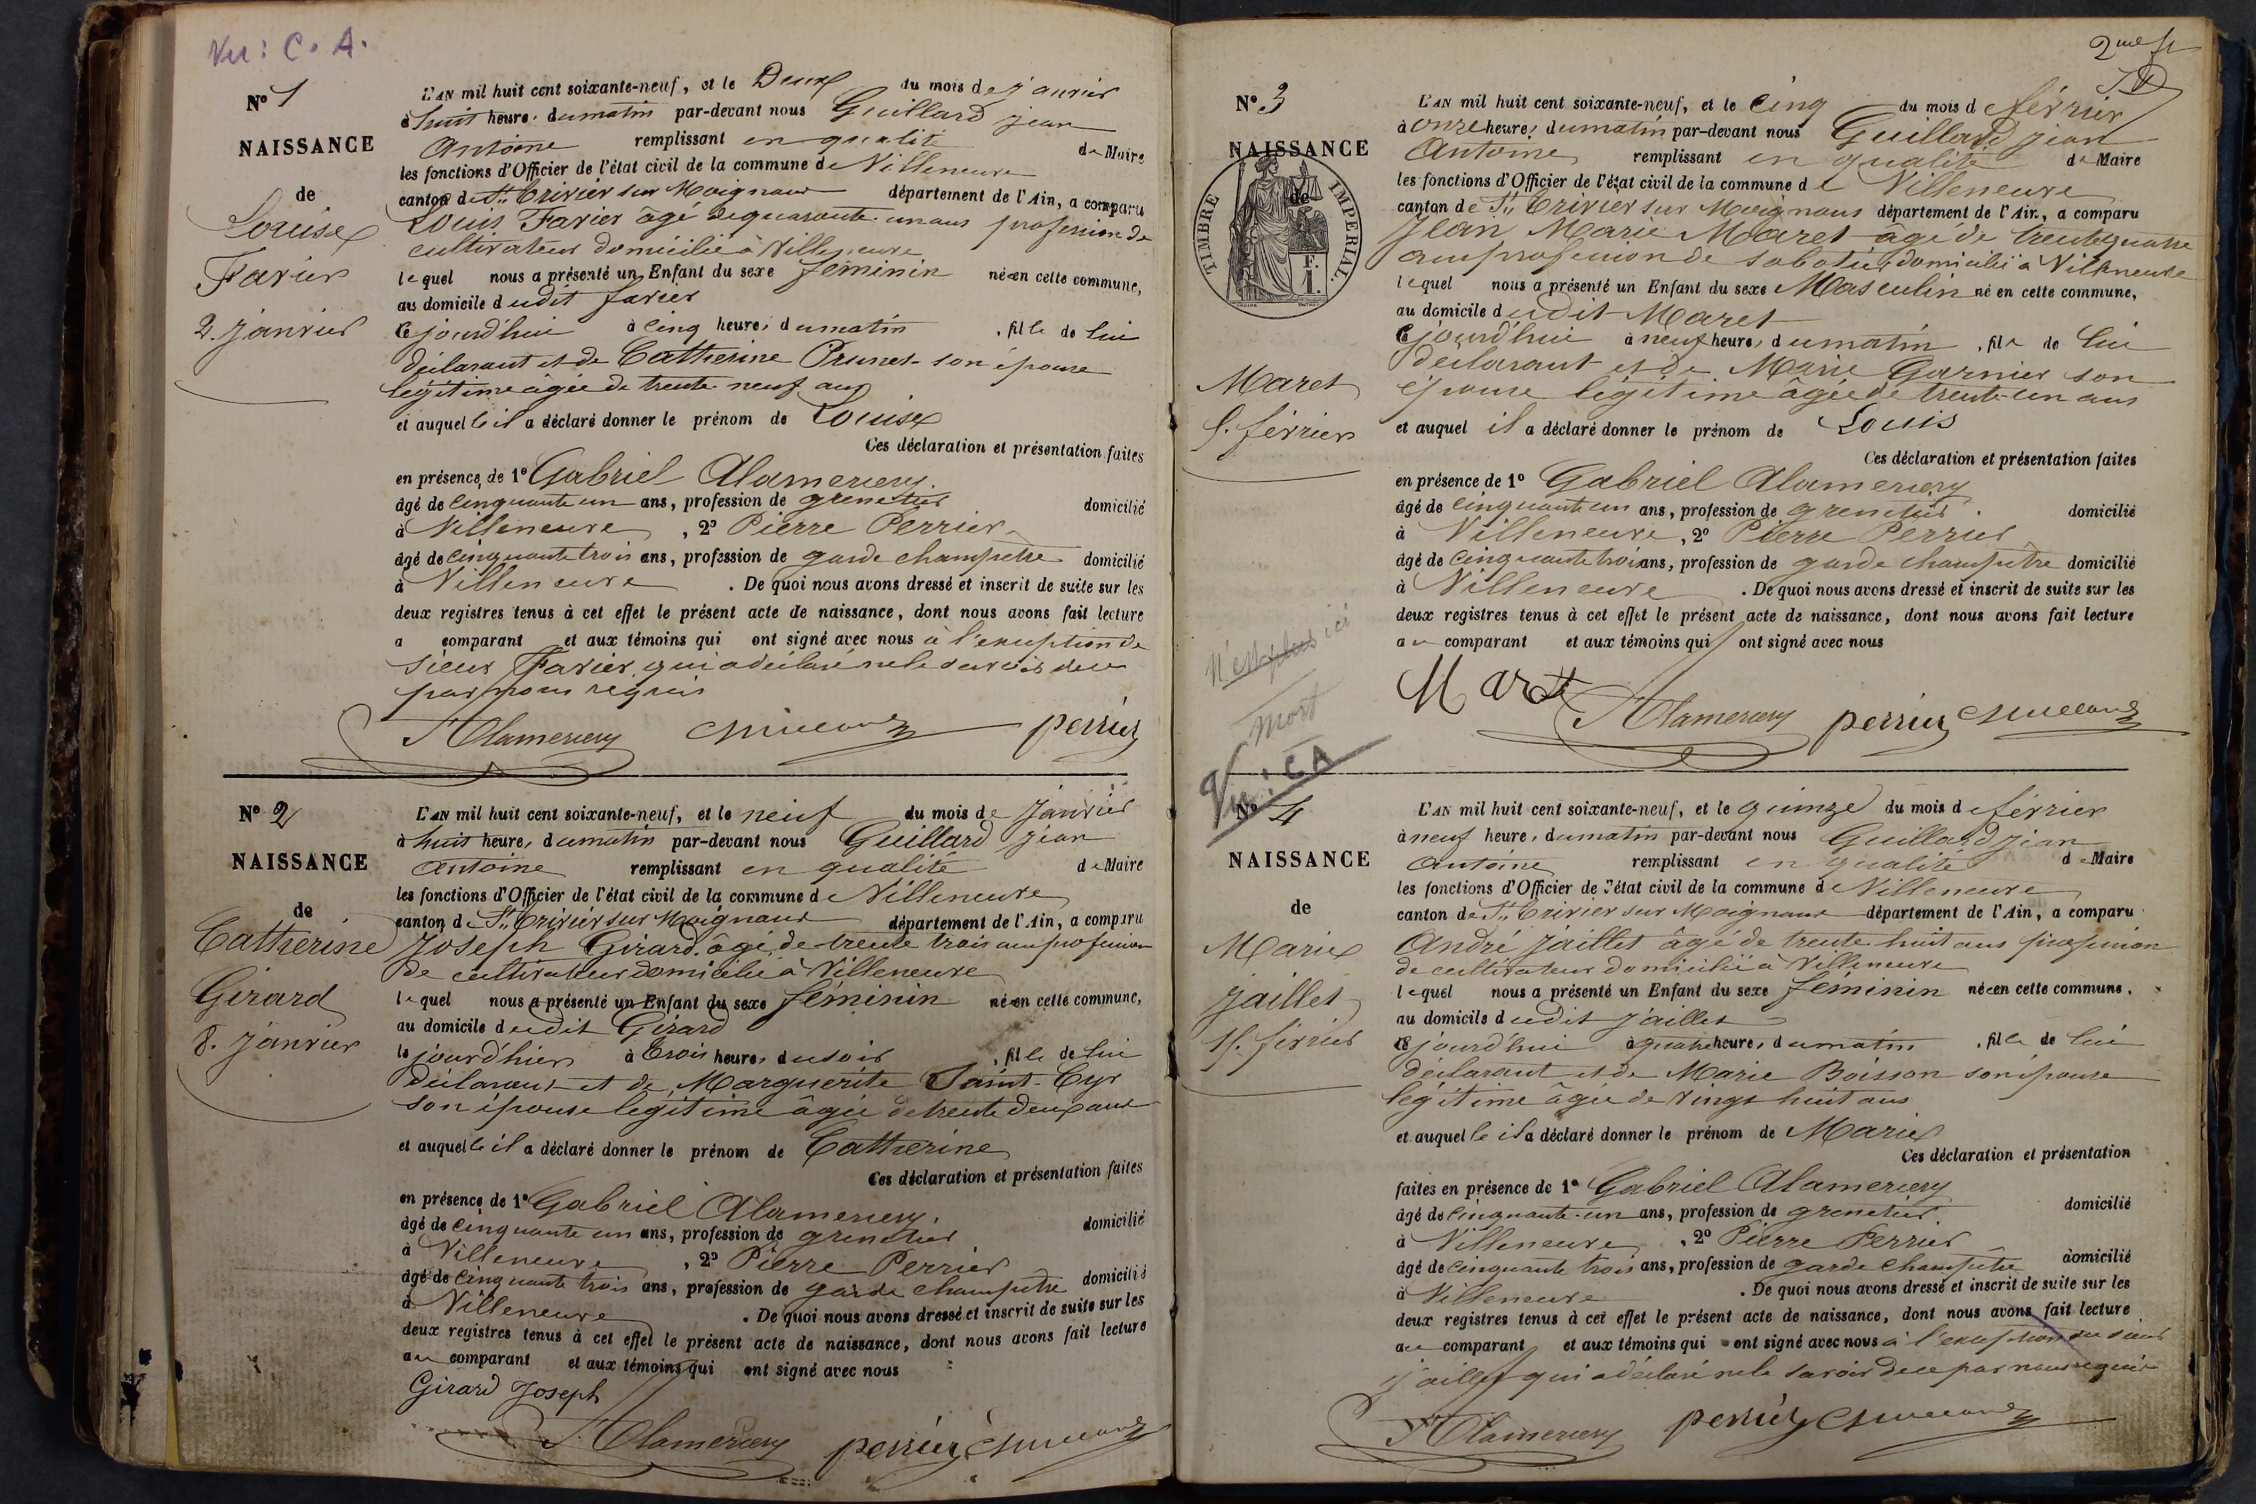 Vu : C. A.
N° 1
NAISSANCE
de
Louise
Farier
2. janvier
L'AN mil huit cent soixante-neuf, et le Deux du mois de janvier
à huit heures du matin par-devant nous Guillard jean
Antoine remplissant en qualité de Maire
les fonctions d'Officier de l'état civil de la commune de Villeneuve
canton de St Trivier sur Moignans département de l'Ain, a comparu
Louis Farier âgé de quarante-un ans profession de
cultivateur domicilié à Villeneuve
lequel nous a présenté un Enfant du sexe féminin née en cette commune,
au domicile dudit farier
Cejourd'hui à cinq heures du matin, fille de lui
déclarant et de Catherine Prunet son épouse
légitime âgée de trente-neuf ans
et auquelle il a déclaré donner le prénom de Louise
Ces déclaration et présentation faites
en présence de 1° Gabriel Alamercery.
âgé de cinquante un ans, profession de grenetier domicilié
à Villeneuve, 2° Pierre Perrier
âgé de cinquante trois ans, profession de garde champetre domicilié
à Villeneuve. De quoi nous avons dressé et inscrit de suite sur les
deux registres tenus à cet effet le présent acte de naissance, dont nous avons fait lecture
a comparant et aux témoins qui ont signé avec nous à l'exception de
sieur Farier qui a déclaré ne le savoir de ce
par nous requis
Alamercery perrier
N° 2
NAISSANCE
de
Catherine
Girard
8. janvier
L'AN mil huit cent soixante-neuf, et le neuf du mois de janvier
à huit heures du matin par-devant nous Guillard jean
Antoine remplissant en qualité de Maire
les fonctions d'Officier de l'état civil de la commune de Villeneuve
canton de St Trivier sur Moignans département de l'Ain, a comparu
Joseph Girard âgé de trente trois ans profession
de cultivateur domicilié à Villeneuve
lequel nous a présenté un Enfant du sexe féminin née en cette commune,
au domicile dudit Girard
le jourd'hier à trois heures du soir, fille de lui
déclarant et de Marguerite Saint-Cyr
son épouse légitime âgée de trente deux ans
et auquelle il a déclaré donner le prénom de Catherine
Ces déclaration et présentation faites
en présence de 1° Gabriel Alamercery.
âgé de cinquante un ans, profession de grenetier domicilié
à Villeneuve, 2° Pierre Perrier
âgé de cinquante trois ans, profession de garde champetre domicilié
à Villeneuve. De quoi nous avons dressé et inscrit de suite sur les
deux registres tenus à cet effet le présent acte de naissance, dont nous avons fait lecture
au comparant et aux témoins qui ont signé avec nous
Girard Joseph
Alamercery perrier
2me f
N° 3
NAISSANCE
de
TIMBRE IMPERIAL.
1 F.
Maret
5. férrier
N'est plus ici
mort
Vu : CA
L'AN mil huit cent soixante-neuf, et le cinq du mois d férrier
à onze heures du matin par-devant nous Guillard jean
Antoine remplissant en qualité de Maire
les fonctions d'Officier de l'état civil de la commune de Villeneuve
canton de St Trivier sur Moignans département de l'Ain, a comparu
Jean Marie Maret âgé de trente quatre
ans profession de sabotier domicilié à Villeneuve
lequel nous a présenté un Enfant du sexe Masculin né en cette commune,
au domicile dudit Maret
Cejourd'hui à neuf heures du matin, fils de lui
déclarant et de Marie Garnier son
épouse légitime âgée de trente-un ans
et auquel il a déclaré donner le prénom de Louis
Ces déclaration et présentation faites
en présence de 1° Gabriel Alamercery
âgé de cinquante un ans, profession de grenetier domicilié
à Villeneuve, 2° Pierre Perrier
âgé de cinquante trois ans, profession de garde champêtre domicilié
à Villeneuve. De quoi nous avons dressé et inscrit de suite sur les
deux registres tenus à cet effet le présent acte de naissance, dont nous avons fait lecture
au comparant et aux témoins qui ont signé avec nous
Maret
Alamercery perrier
N° 4
NAISSANCE
de
Marie
jaillet
15. férrier
L'AN mil huit cent soixante-neuf, et le quinze du mois de férrier
à neuf heures du matin par-devant nous Guillard jean
Antoine remplissant en qualité de Maire
les fonctions d'Officier de l'état civil de la commune de Villeneuve
canton de St Trivier sur Moignans département de l'Ain, a comparu
André jaillet âgé de trente huit ans profession
de cultivateur domicilié à Villeneuve
lequel nous a présenté un Enfant du sexe féminin née en cette commune,
au domicile dudit jaillet
ce jourd'hui à quatre heures du matin, fille de lui
déclarant et de Marie Boisson son épouse
légitime âgée de vingt huit ans
et auquelle il a déclaré donner le prénom de Marie
Ces déclaration et présentation
faites en présence de 1° Gabriel Alamercery
âgé de cinquante-un ans, profession de grenetier domicilié
à Villeneuve, 2° Pierre Perrier
âgé de cinquante trois ans, profession de garde champêtre domicilié
à Villeneuve. De quoi nous avons dressé et inscrit de suite sur les
deux registres tenus à cet effet le présent acte de naissance, dont nous avons fait lecture
au comparant et aux témoins qui ont signé avec nous à l'exception du sieur
jaillet qui a déclaré ne le savoir de ce par nous requis
Alamercery perrier